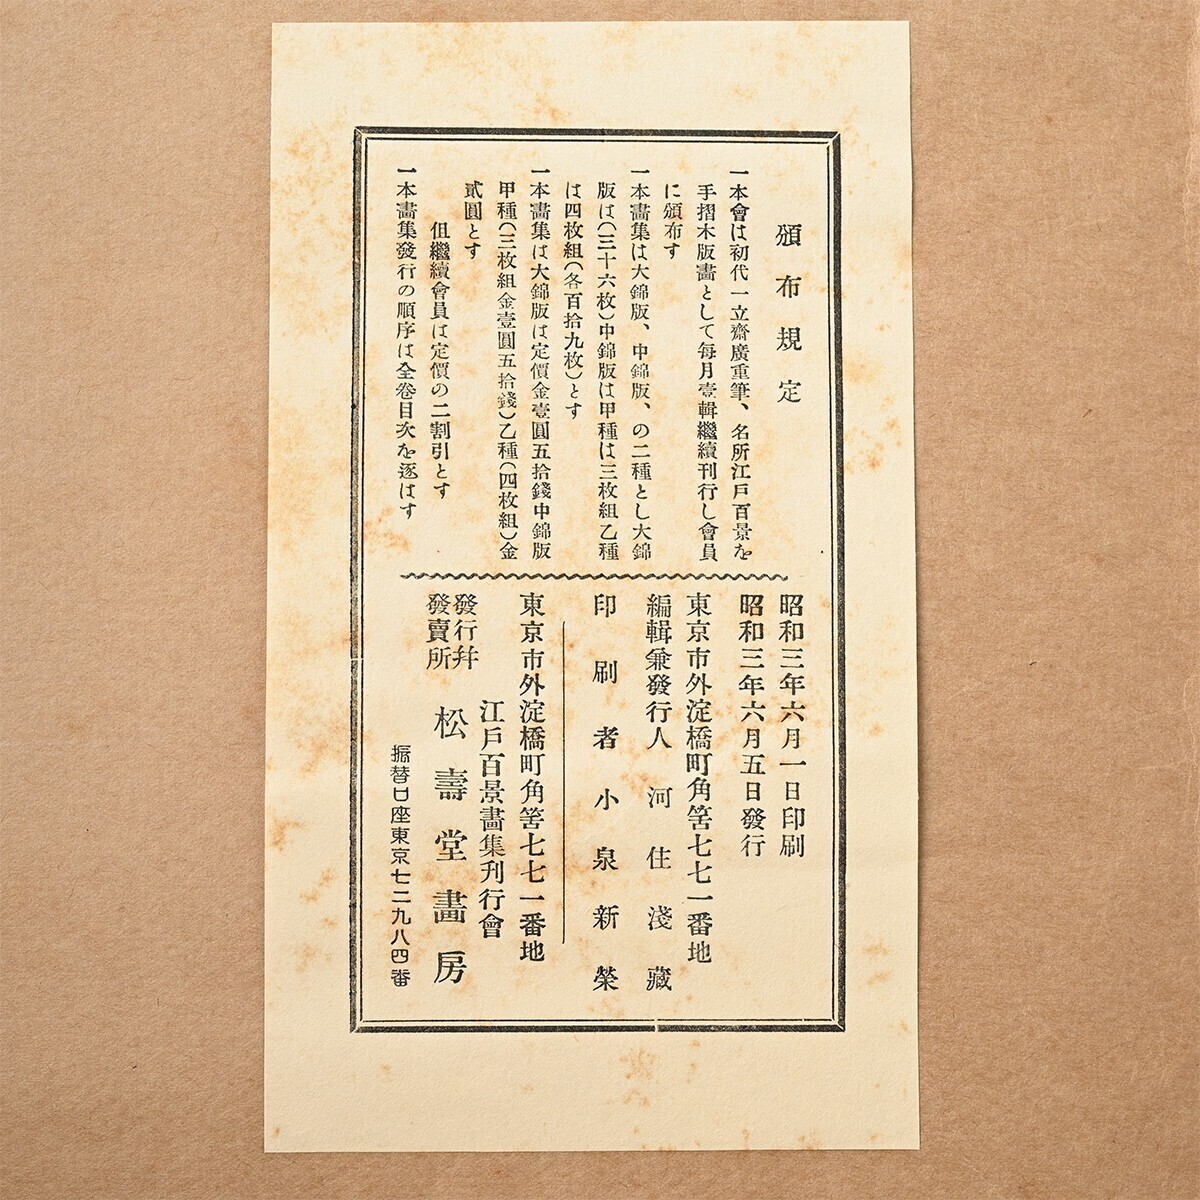 頒布規定
一本會は初代一立齋廣重筆、名所江戸百景を
手摺木版畫として每月壹輯繼續刊行し會員
に頒布す
一本畫集は大錦版、中錦版、の二種とし大錦
版は(三十六枚)中錦版は甲種は三枚組乙種
は四枚組(各百拾九枚)とす
一本畫集は大錦版は定價金壹圓五拾錢中錦版
甲種(三枚組金壹圓五拾錢)乙種(四枚組)金
貳圓とす
但繼續會員は定價の二割引とす
一本畫集發行の順序は全卷目次を逐はす
昭和三年六月一日印刷
昭和三年六月五日發行
東京市外淀橋町角筈七七一番地
編輯兼發行人 河住淺藏
印刷者 小泉新榮
東京市外淀橋町角筈七七一番地
江戸百景畫集刊行會
發行幷
發賣所 松壽堂畫房
振替口座東京七二九八四番